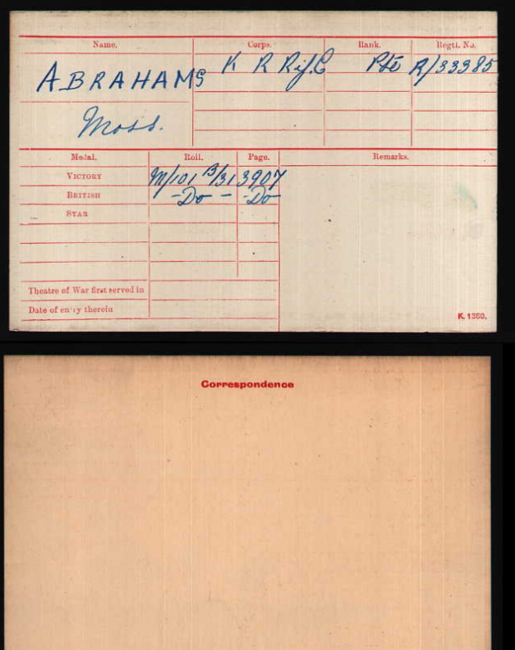 Name. Corps. Rank. Regtl. No.
ABRAHAMS K R Rif C Pte R/33385
Moss.
Medal. Roll. Page. Remarks.
VICTORY M/101 B/31 3907
BRITISH -Do- -Do-
STAR
Theatre of War first served in
Date of entry therein
K. 1380.
Correspondence